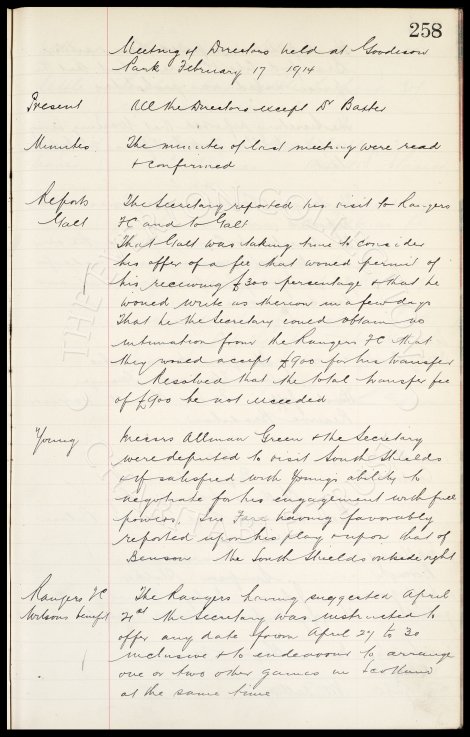 258
Meeting of Directors held at Goodison
Park February 17 1914
Present All the Directors except Dr Baxter
Minutes The minutes of last meeting were read
& confirmed
Reports The Secretary reported his visit to Rangers
Galt FC and to Galt
That Galt was taking time to consider
his offer of a fee that would permit of
his receiving £300 percentage & that he
would write us thereon in a few days
That he the Secretary could obtain no
intimation from the Rangers FC that
they would accept £900 for his transfer
Resolved that the total transfer fee
of £900 be not exceeded
Young Messrs Allman Green & the Secretary
were deputed to visit South Shields
& if satisfied with Youngs ability to
negotiate for his engagement with full
powers. having favorably
reported upon his play & upon that of
Benson the South Shields outside right
Rangers FC The Rangers having suggested April
Wilsons benefit 21st the Secretary was instructed to
offer any date from April 27 to 30
inclusive & to endeavour to arrange
one or two other games in Scotland
at the same time